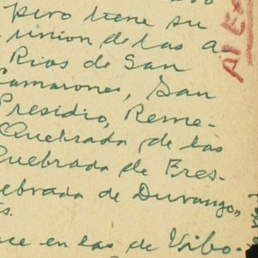 pero tiene su
unión de las a-
Rios de San
Camarones, San
Presidio, Reme-
Quebrada de las
Quebrada de Fres-
ebrada de Durango,
ce en las de Vibo-
Al Ex